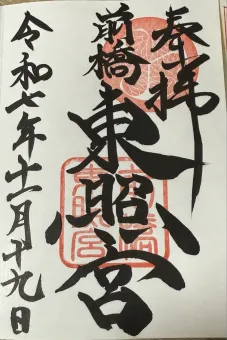 奉拝
前橋東照宮
令和七年十一月十九日